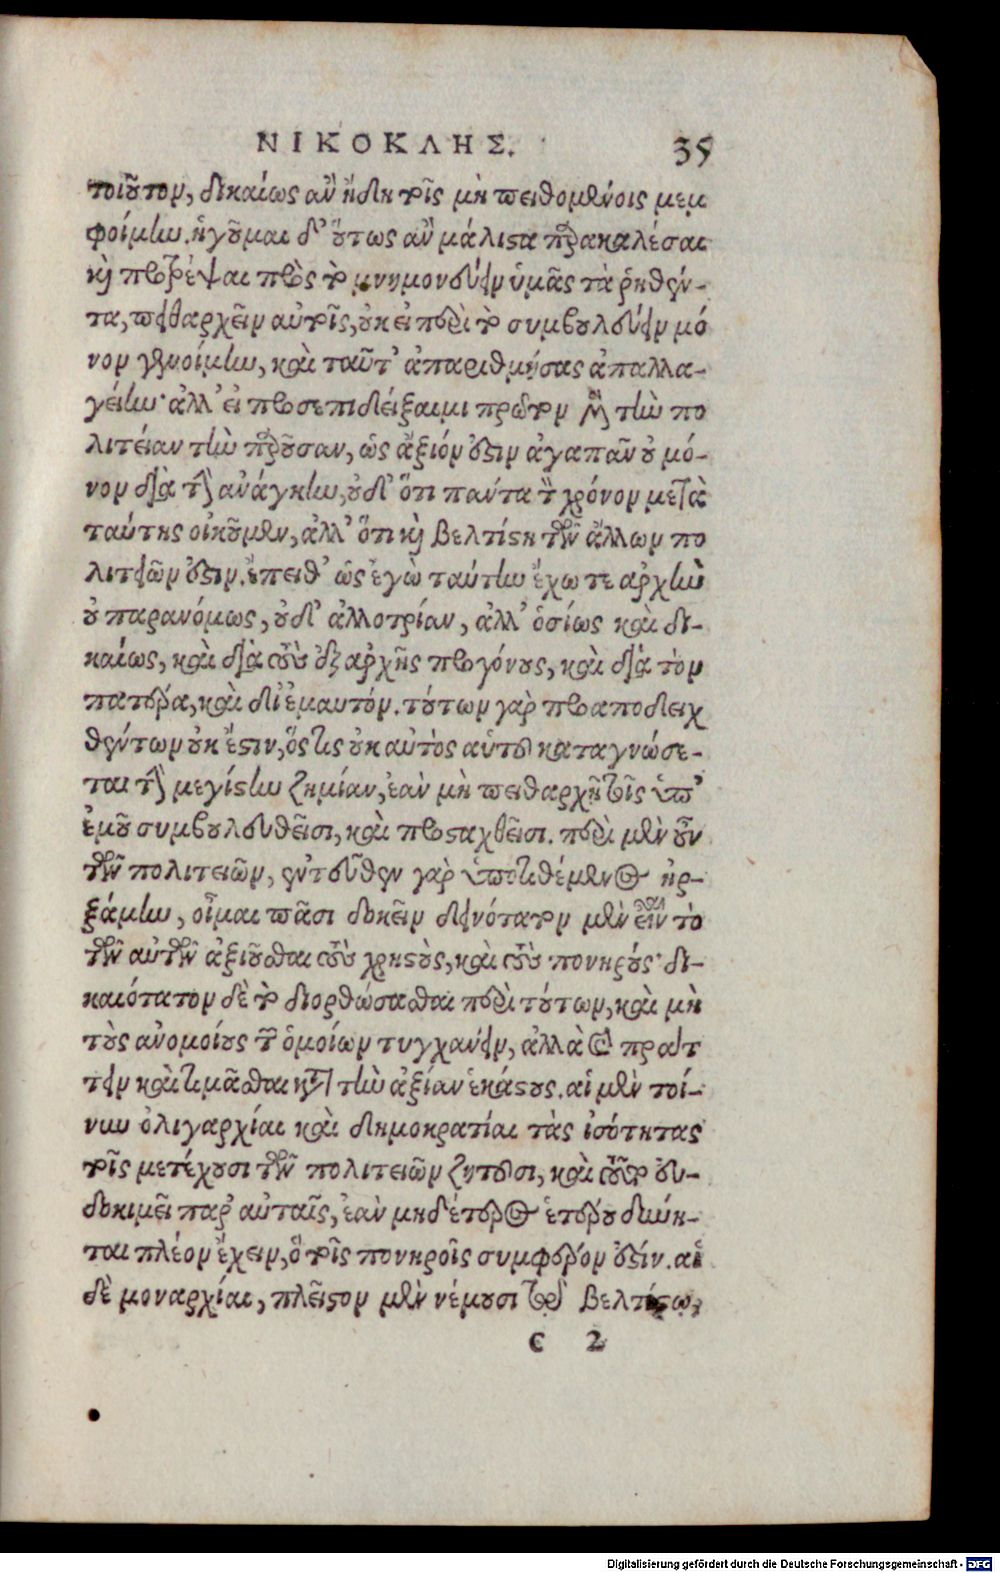 ΝΙΚΟΚΛΗΣ. 35
τοιοῦτον, δικαίως ἂν ἤδη τοῖς μὴ πειθομένοις μεμ
φοίμην. ἡγοῦμαι δ' οὕτως ἂν μάλιστα παρακαλέσαι
καὶ προτρέψαι πρὸς τὸ μνημονεύειν ὑμᾶς τὰ ῥηθέν-
τα, πειθαρχεῖν αὐτοῖς, οὐκ εἰ περὶ τὸ συμβουλεύειν μό
νον γενοίμην, καὶ ταῦτ' ἀπαριθμήσας ἀπαλλα-
γείην· ἀλλ' εἰ προσεπιδείξαιμι πρῶτον μὲν τὴν πο
λιτείαν τὴν παροῦσαν, ὡς ἄξιόν ἐστιν ἀγαπᾶν οὐ μό-
νον διὰ τὴν ἀνάγκην, οὐδ' ὅτι πάντα τὸν χρόνον μετὰ
ταύτης οἰκοῦμεν, ἀλλ' ὅτι καὶ βελτίστη τῶν ἄλλων πο
λιτειῶν ἐστιν. ἔπειθ' ὡς ἐγὼ ταύτην ἔχω τε ἀρχὴν
οὐ παρανόμως, οὐδ' ἀλλοτρίαν, ἀλλ' ὁσίως καὶ δι-
καίως, καὶ διὰ τοὺς ἐξ ἀρχῆς προγόνους, καὶ διὰ τὸν
πατέρα, καὶ δι' ἐμαυτόν. τούτων γὰρ προαποδειχ
θέντων οὐκ ἔστιν, ὅστις οὐκ αὐτὸς αὑτοῦ καταγνώσε-
ται τὴν μεγίστην ζημίαν, ἐὰν μὴ πειθαρχῇ τοῖς ὑπ'
ἐμοῦ συμβουλευθεῖσι, καὶ προσταχθεῖσι. περὶ μὲν οὖν
τῶν πολιτειῶν, ἐντεῦθεν γὰρ ὑποτιθέμενος ἠρ-
ξάμην, οἶμαι πᾶσι δοκεῖν δεινότατον μὲν εἶναι τὸ
τῶν αὐτῶν ἀξιοῦσθαι τοὺς χρηστοὺς, καὶ τοὺς πονηρούς· δι-
καιότατον δὲ τὸ διορθώσασθαι περὶ τούτων, καὶ μὴ
τοὺς ἀνομοίους τῶν ὁμοίων τυγχάνειν, ἀλλὰ καὶ πράτ
τειν καὶ τιμᾶσθαι κατὰ τὴν ἀξίαν ἑκάστους. αἱ μὲν τοί-
νυν ὀλιγαρχίαι καὶ δημοκρατίαι τὰς ἰσότητας
τοῖς μετέχουσι τῶν πολιτειῶν ζητοῦσι, καὶ τοῦτο εὐ-
δοκιμεῖ παρ' αὐταῖς, ἐὰν μηδ' ἕτερος ἑτέρου δύνη-
ται πλέον ἔχειν, ὃ τοῖς πονηροῖς συμφέρον ἐστίν. αἱ
δὲ μοναρχίαι, πλεῖστον μὲν νέμουσι τῷ βελτίστῳ,
c 2
Digitalisierung gefördert durch die Deutsche Forschungsgemeinschaft - DFG